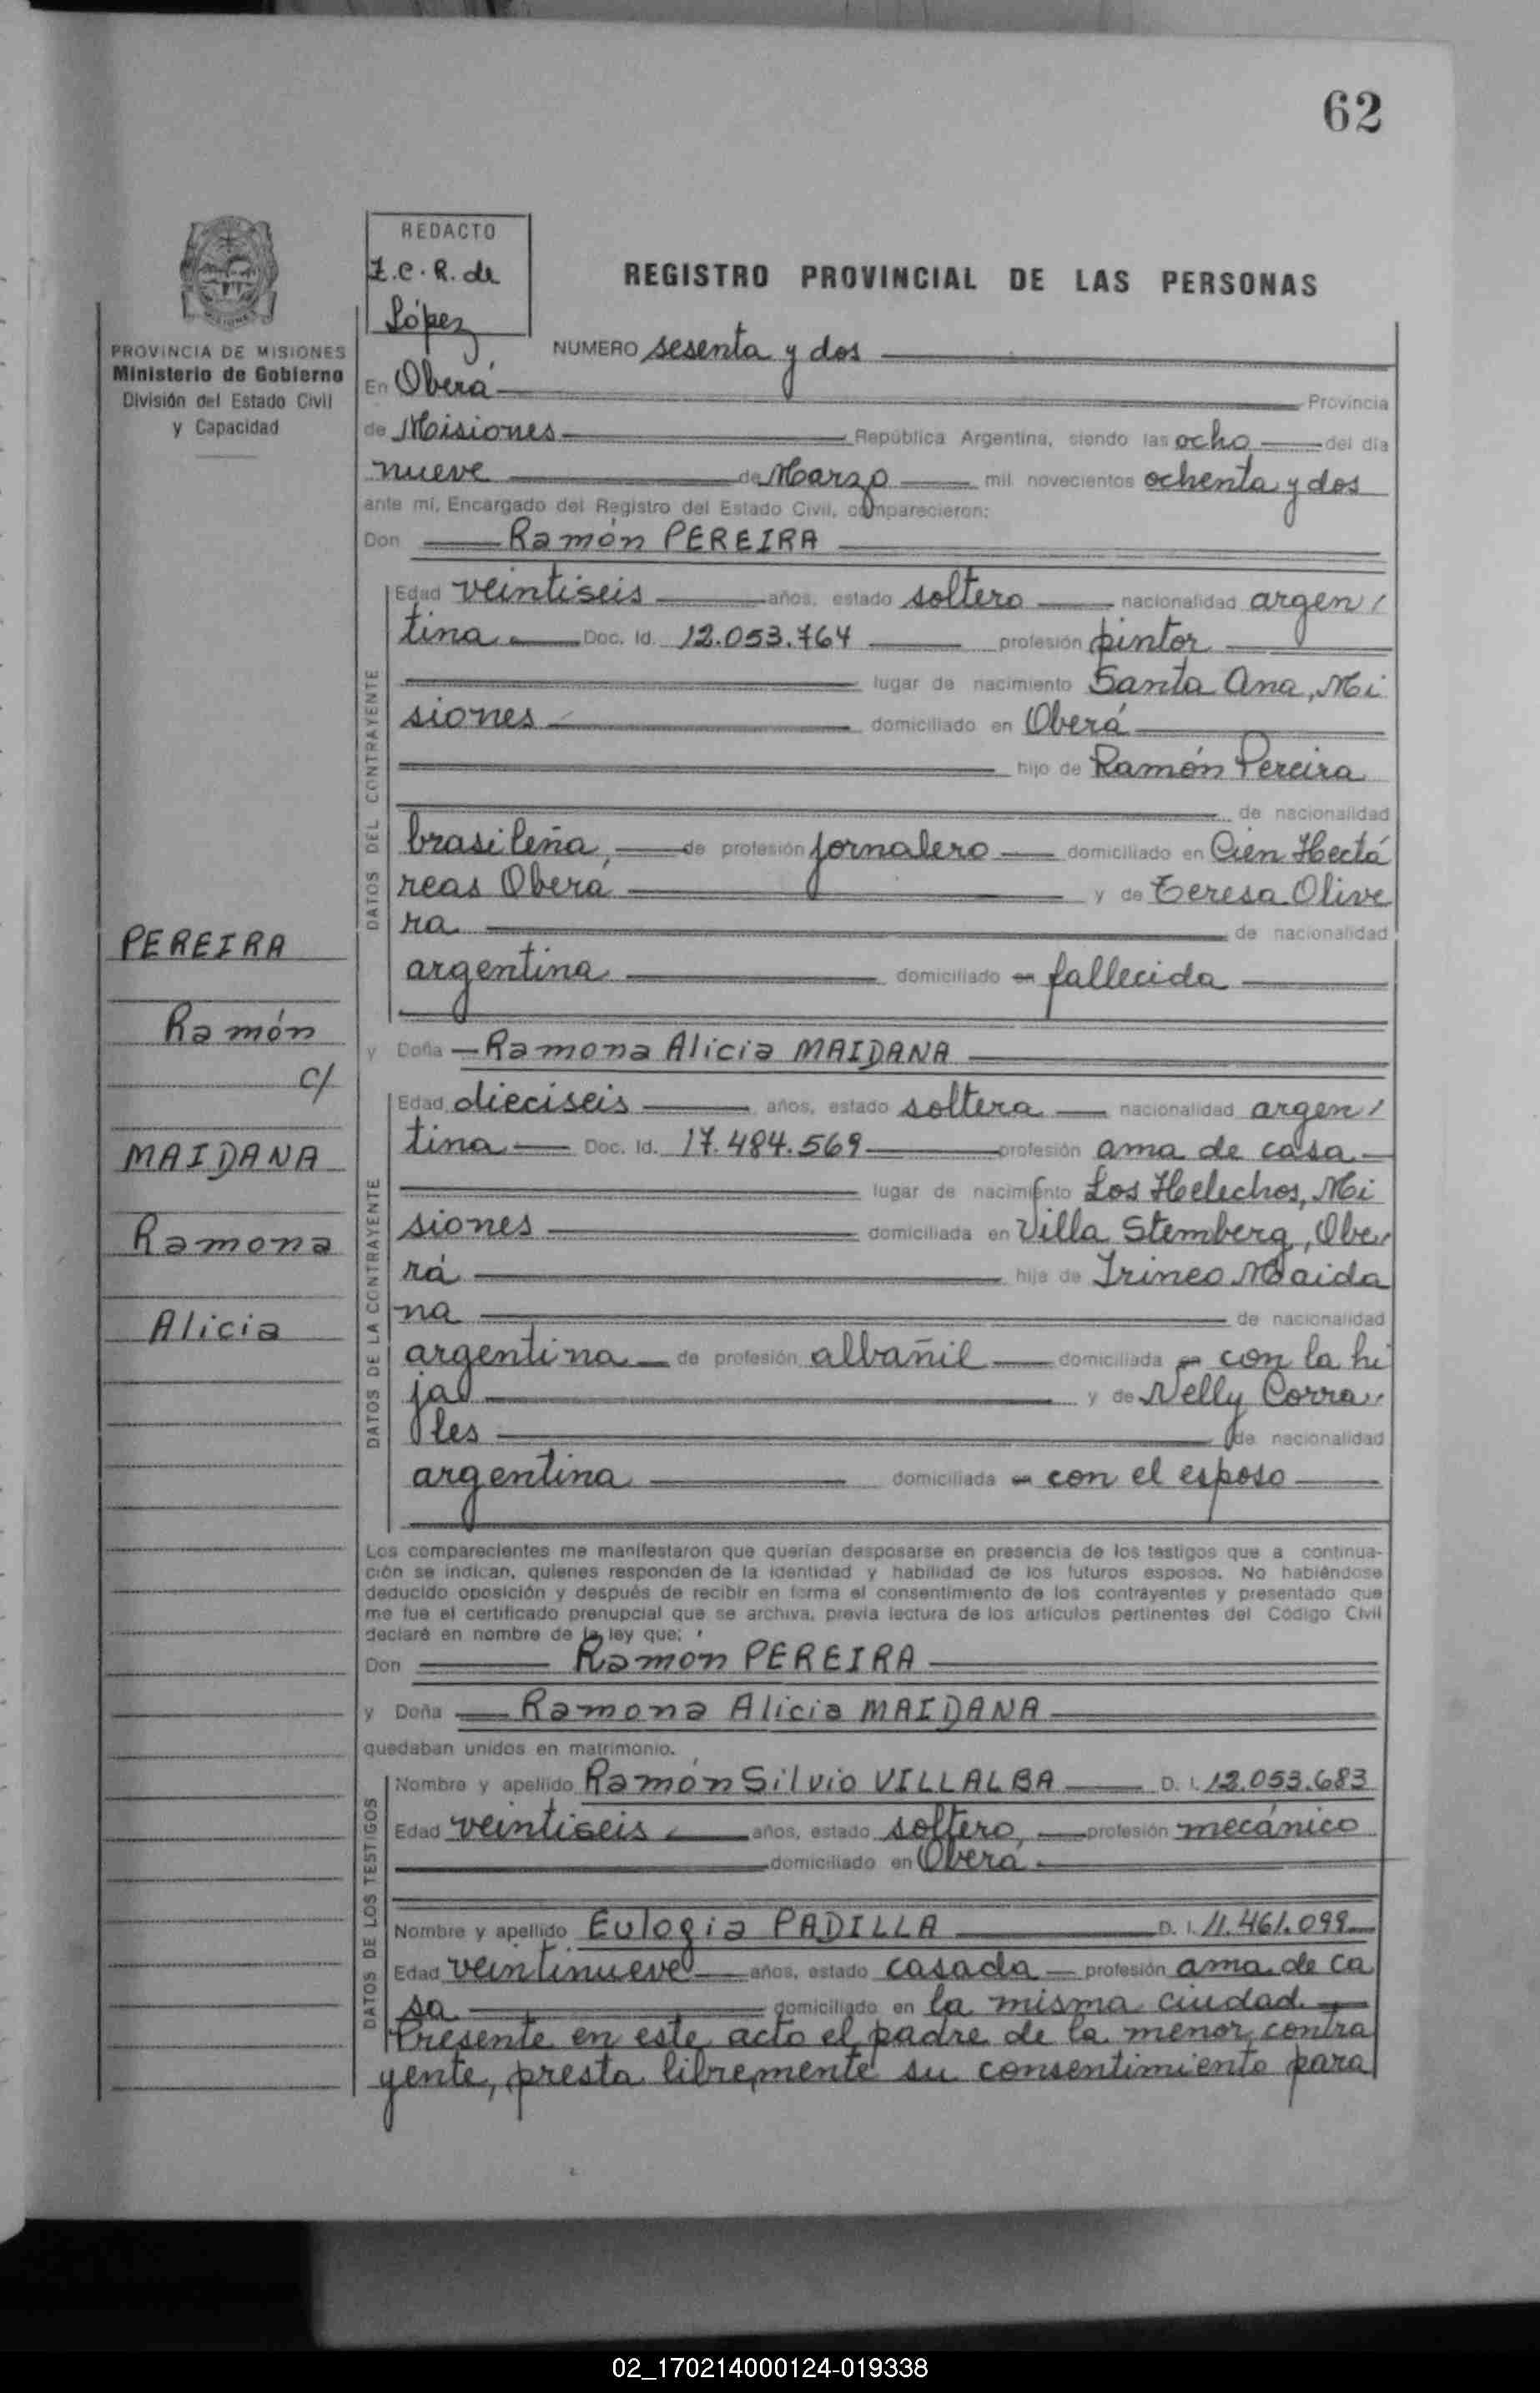 62
REDACTO
Z.C.R. de
López
REGISTRO PROVINCIAL DE LAS PERSONAS
PROVINCIA DE MISIONES
Ministerio de Gobierno
División del Estado Civil
y Capacidad
NUMERO sesenta y dos
En Oberá Provincia
de Misiones República Argentina, siendo las ocho del día
nueve de Marzo mil novecientos ochenta y dos
ante mí, Encargado del Registro del Estado Civil, comparecieron:
Don Ramón PEREIRA
DATOS DEL CONTRAYENTE
Edad veintiseis años, estado soltero nacionalidad argen/
tina Doc. Id. 12.053.764 profesión pintor
lugar de nacimiento Santa Ana, Mi
siones domiciliado en Oberá
hijo de Ramón Pereira
de nacionalidad
brasileña, de profesión jornalero domiciliado en Cien Hectá
reas Oberá y de Teresa Olive
ra de nacionalidad
argentina domiciliado en fallecida
y Doña Ramona Alicia MAIDANA
DATOS DE LA CONTRAYENTE
Edad dieciseis años, estado soltera nacionalidad argen/
tina Doc. Id. 17.484.569 profesión ama de casa
lugar de nacimiento Los Helechos, Mi
siones domiciliada en Villa Stemberg, Obe
rá hija de Irineo Maida
na de nacionalidad
argentina de profesión albañil domiciliada en con la hi
ja y de Nelly Corra
les de nacionalidad
argentina domiciliada en con el esposo
PEREIRA
Ramón
c/
MAIDANA
Ramona
Alicia
Los comparecientes me manifestaron que querían desposarse en presencia de los testigos que a continua-
ción se indican, quienes responden de la identidad y habilidad de los futuros esposos. No habiéndose
deducido oposición y después de recibir en forma el consentimiento de los contrayentes y presentado que
me fue el certificado prenupcial que se archiva, previa lectura de los artículos pertinentes del Código Civil
declaré en nombre de la ley que:
Don Ramon PEREIRA
y Doña Ramona Alicia MAIDANA
quedaban unidos en matrimonio.
DATOS DE LOS TESTIGOS
Nombre y apellido Ramón Silvio VILLALBA D. I. 12.053.683
Edad veintiseis años, estado soltero, profesión mecánico
domiciliado en Oberá
Nombre y apellido Eulogia PADILLA D. I. 11.461.099
Edad veintinueve años, estado casada profesión ama de ca
sa domiciliado en la misma ciudad
Presente en este acto el padre de la menor contra
yente, presta libremente su consentimiento para
02_170214000124-019338